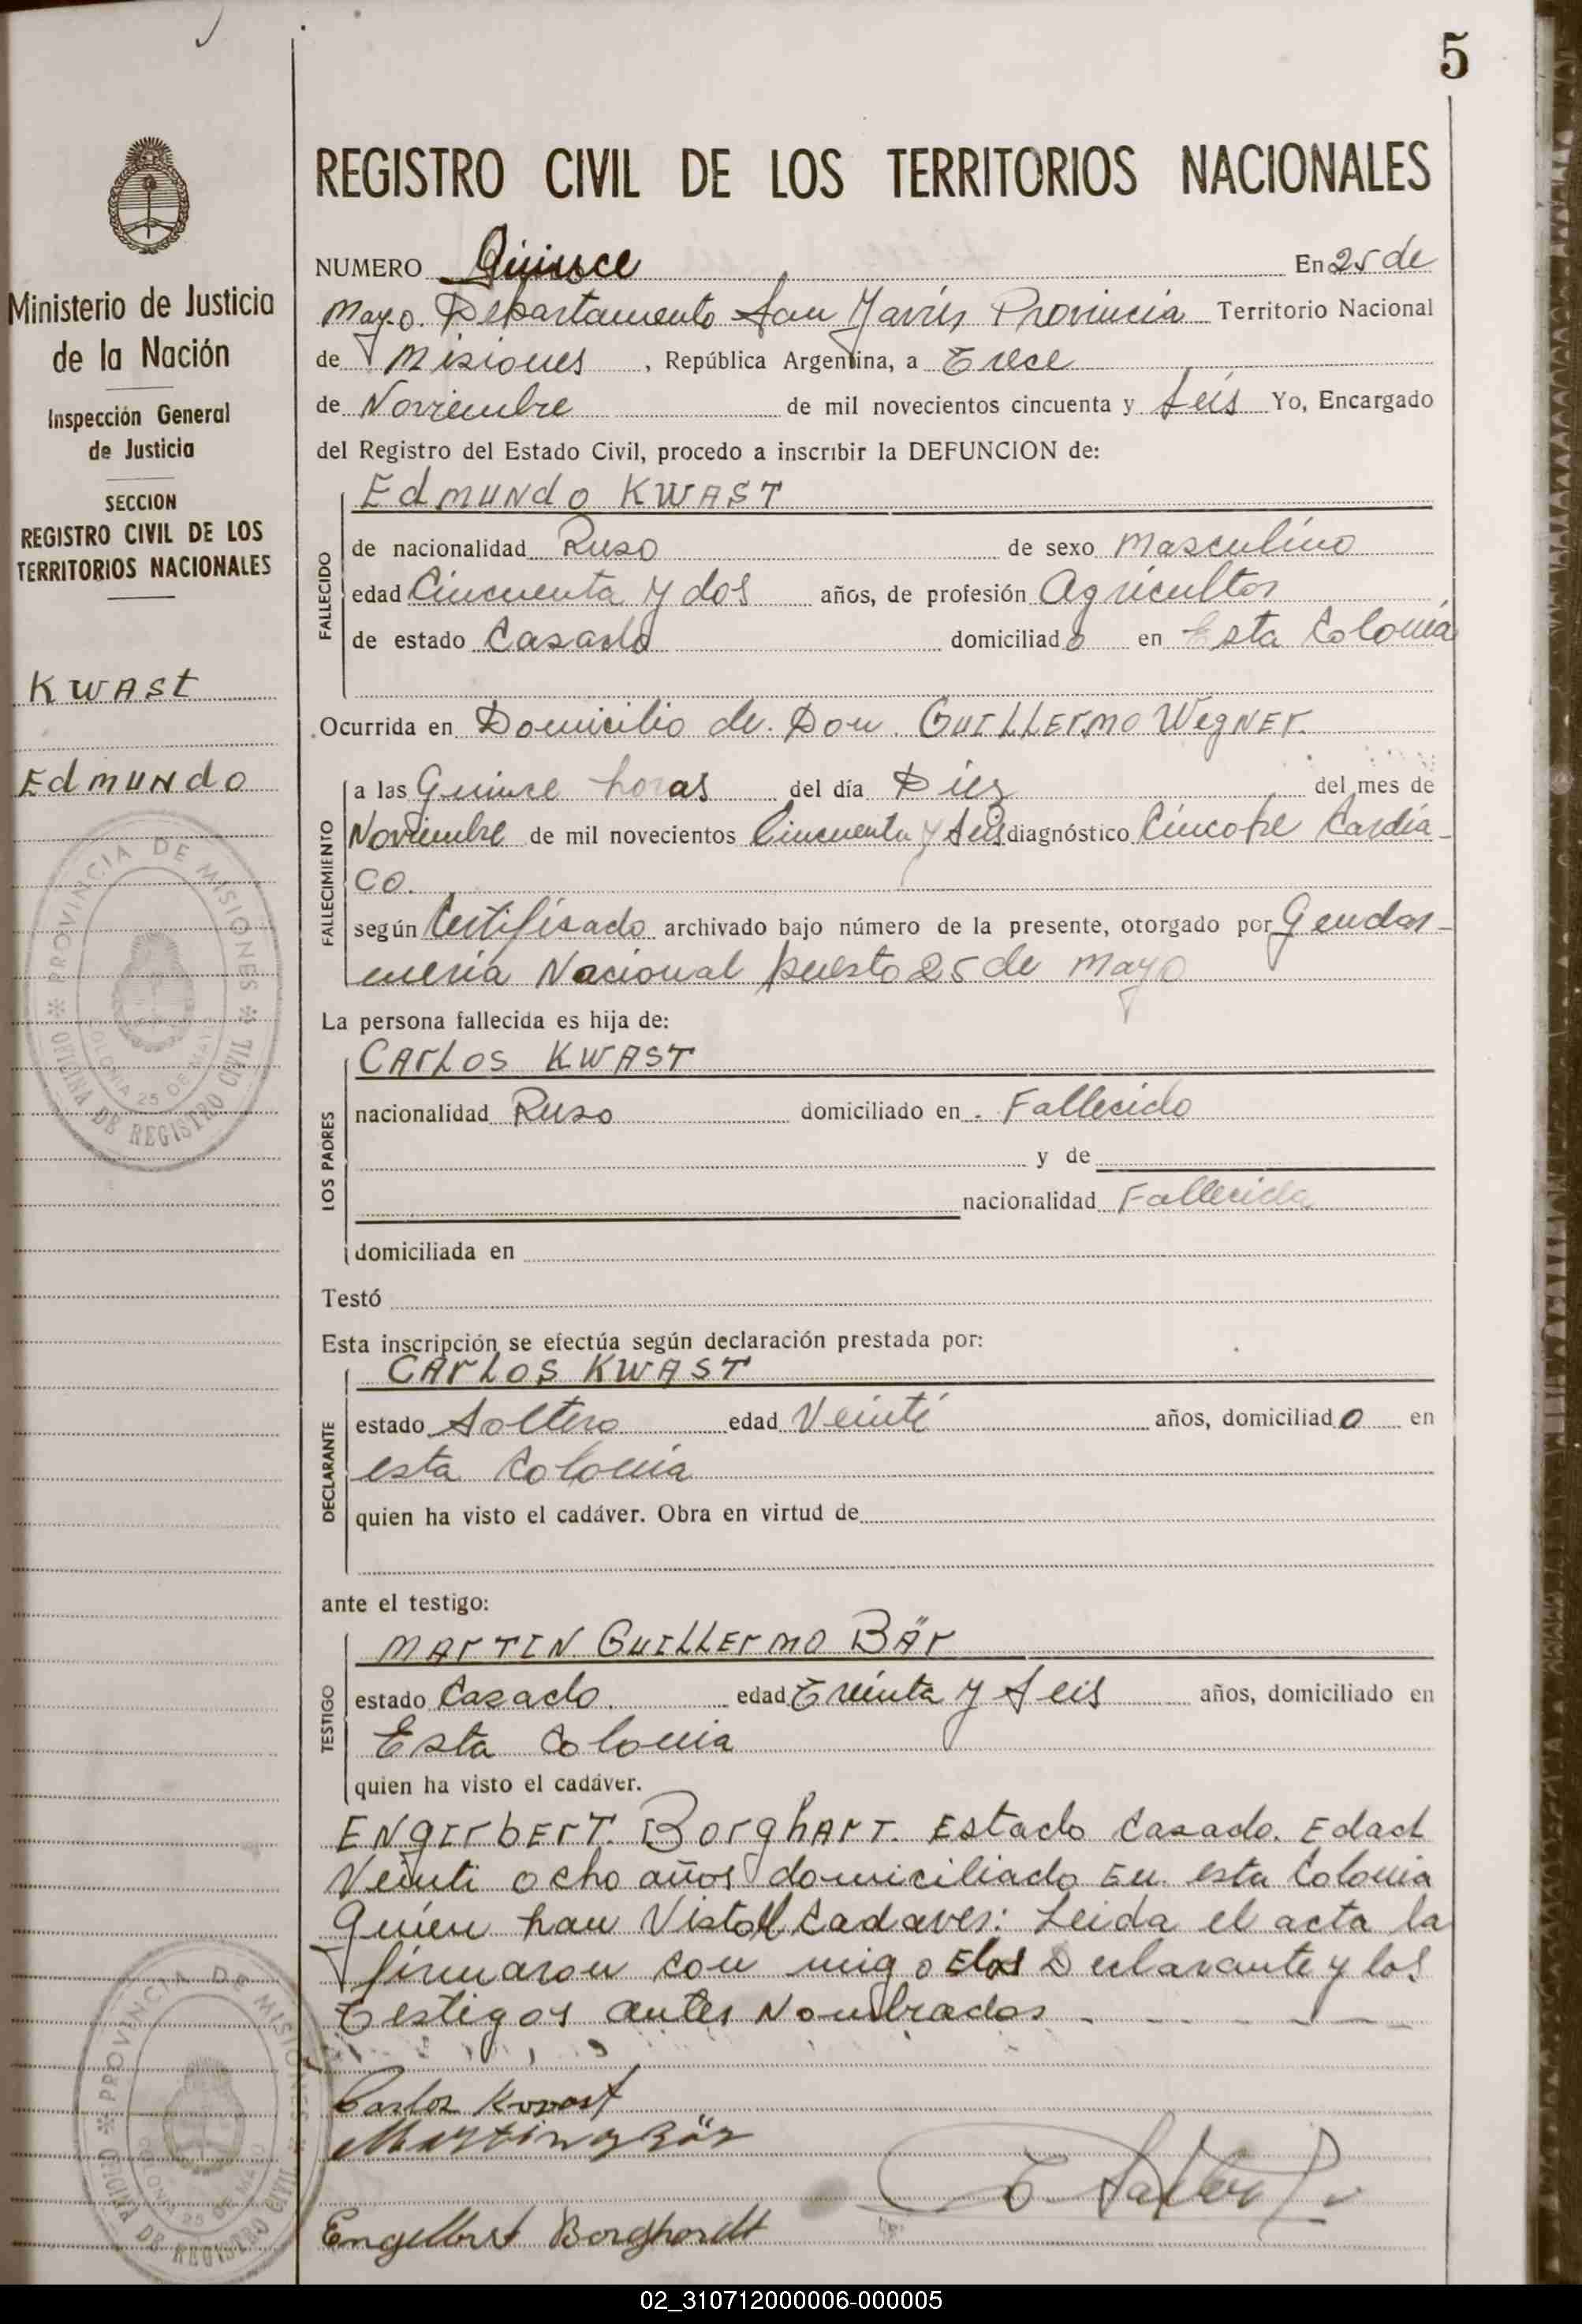 5
Ministerio de Justicia
de la Nación
Inspección General
de Justicia
SECCION
REGISTRO CIVIL DE LOS
TERRITORIOS NACIONALES
KWASt
EdMUNdO
PROVINCIA DE MISIONES
COLONIA 25 DE MAYO
OFICINA DE REGISTRO CIVIL
REGISTRO CIVIL DE LOS TERRITORIOS NACIONALES
NUMERO Quince En 25 de
Mayo. Departamento San Javier Provincia Territorio Nacional
de Misiones, República Argentina, a Trece
de Noviembre de mil novecientos cincuenta y Seis Yo, Encargado
del Registro del Estado Civil, procedo a inscribir la DEFUNCION de:
EdMUNdO KWAST
FALLECIDO
de nacionalidad Ruso de sexo Masculino
edad Cincuenta y dos años, de profesión Agricultor
de estado Casado domiciliado en Esta Colonia
Ocurrida en Domicilio de. Don. GUILLErMO WEgNEr.
FALLECIMIENTO
a las Quince horas del día Diez del mes de
Noviembre de mil novecientos Cincuenta y Seis diagnóstico Cincope Cardia-
co.
según Certificado archivado bajo número de la presente, otorgado por Gendar-
meria Nacional puesto 25 de Mayo
La persona fallecida es hija de:
LOS PADRES
CArLOS KWAST
nacionalidad Ruso domiciliado en. Fallecido
y de
nacionalidad Fallecida
domiciliada en
Testó
Esta inscripción se efectúa según declaración prestada por:
DECLARANTE
CArLOS KWAST
estado Soltero edad Veinti años, domiciliado en
esta Colonia
quien ha visto el cadáver. Obra en virtud de
ante el testigo:
TESTIGO
MArTIN GUILLErMO BÄr
estado Casado. edad Treinta y Seis años, domiciliado en
Esta Colonia
quien ha visto el cadáver.
ENgErbErT. BOrghArT. Estado Casado. Edad
Veinti ocho años domiciliado En esta Colonia
Quien han Visto el Cadaver: Leida el acta la
firmaron con migo Declarante y los
Testigos antes Nombrados
Carlos Kwast
Martin Bär
Engelbert Borghardt
PROVINCIA DE MISIONES
COLONIA 25 DE MAYO
OFICINA DE REGISTRO CIVIL
02_310712000006-000005